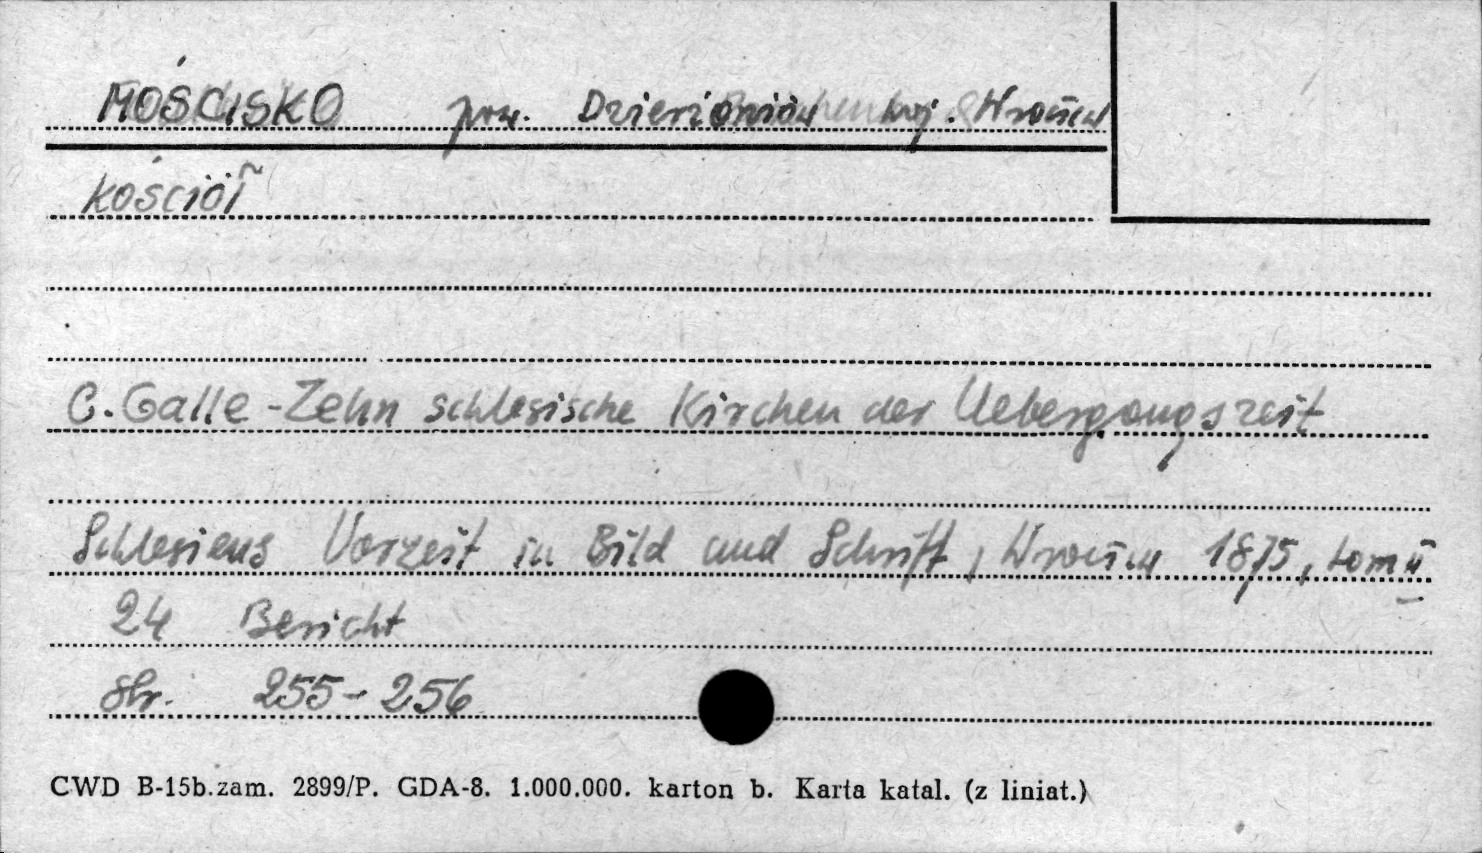 MOŚCISKO pow. Dzierżoniów woj. Wrocław
kościół
C. Galle - Zehn schlesische Kirchen der Uebergangszeit
Schlesiens Vorzeit in Bild und Schrift, Wrocław 1875, tom II
24 Bericht
str. 255-256
CWD B-15b.zam. 2899/P. GDA-8. 1.000.000. karton b. Karta katal. (z liniat.)